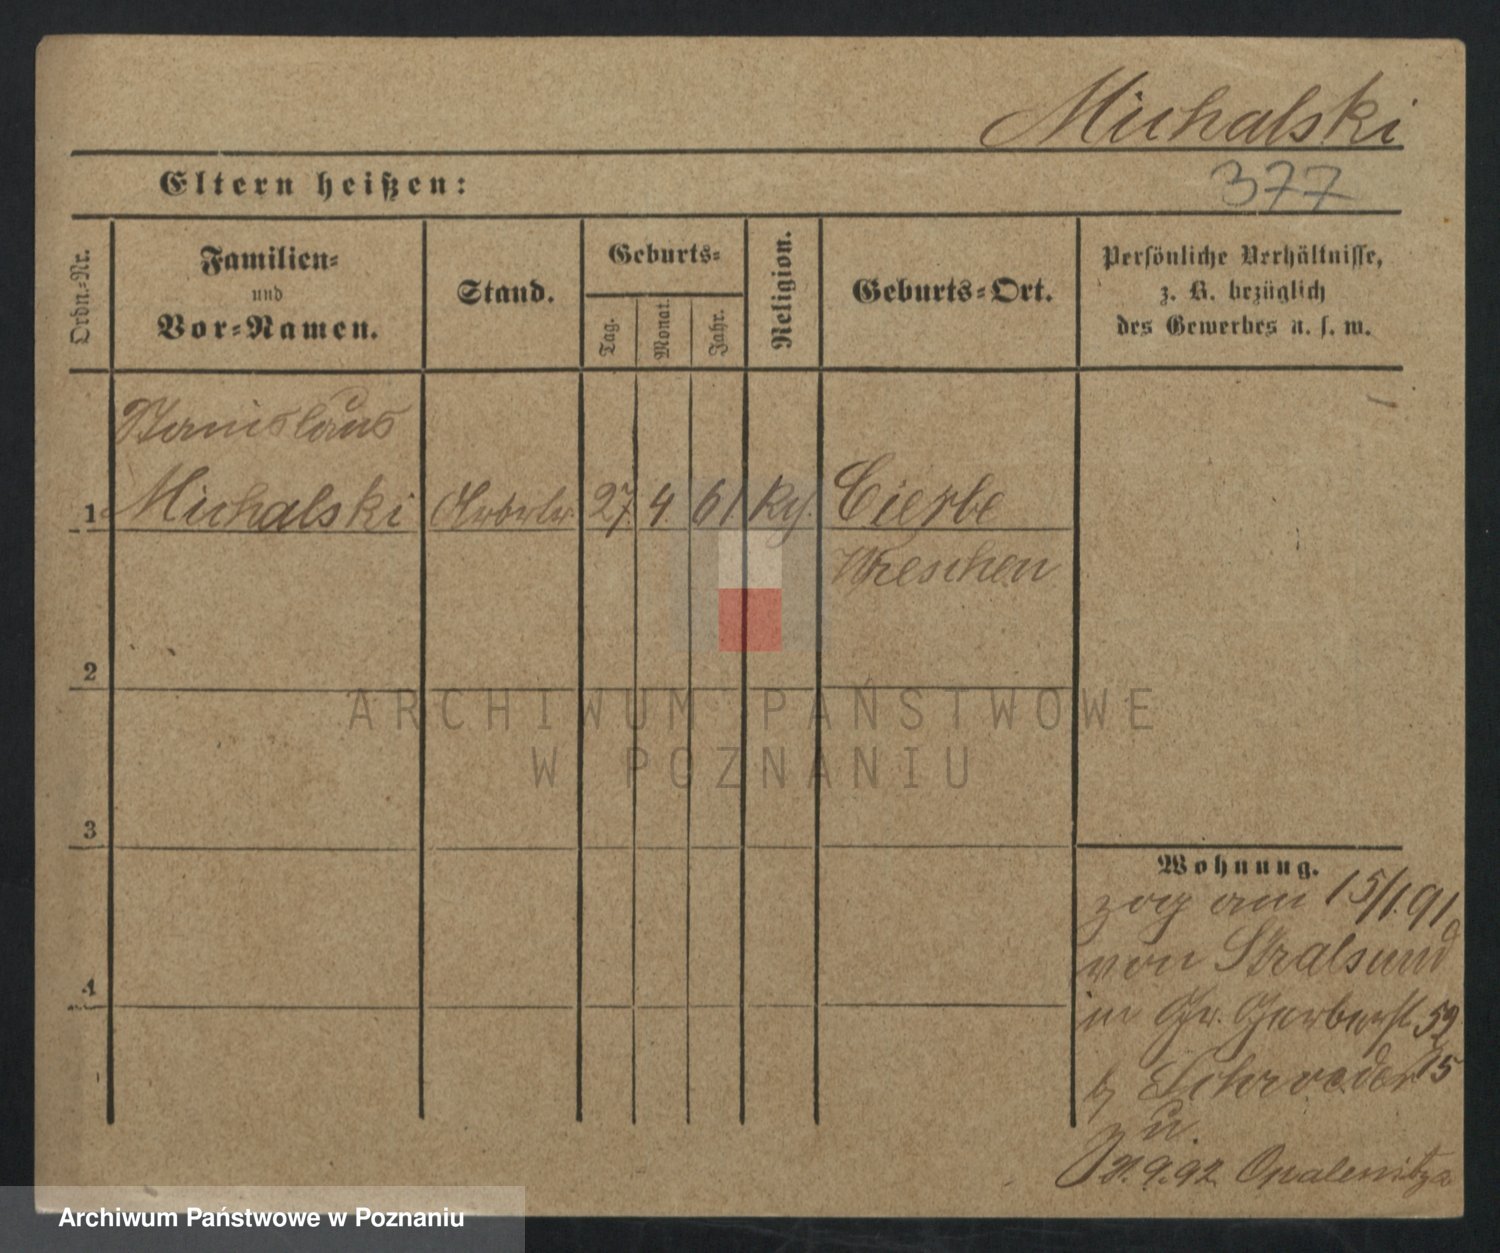 Michalski
Eltern heißen:
377
Ordn.-Nr.
Familien-
und
Vor-Namen.
Stand.
Geburts-
Tag.
Monat.
Jahr.
Religion.
Geburts-Ort.
Persönliche Verhältnisse,
z. B. bezüglich
des Gewerbes u. s. w.
Stanislaus
1 Michalski Arbtr. 27. 4. 61
Wreschen
2
3
4
ARCHIWUM PAŃSTWOWE
W POZNANIU
Wohnung.
zog am 15/1.91
von Stralsund
in Gr. Gerberst. 52
b. Schroeder 15
9.92 Opalenitza
Archiwum Państwowe w Poznaniu